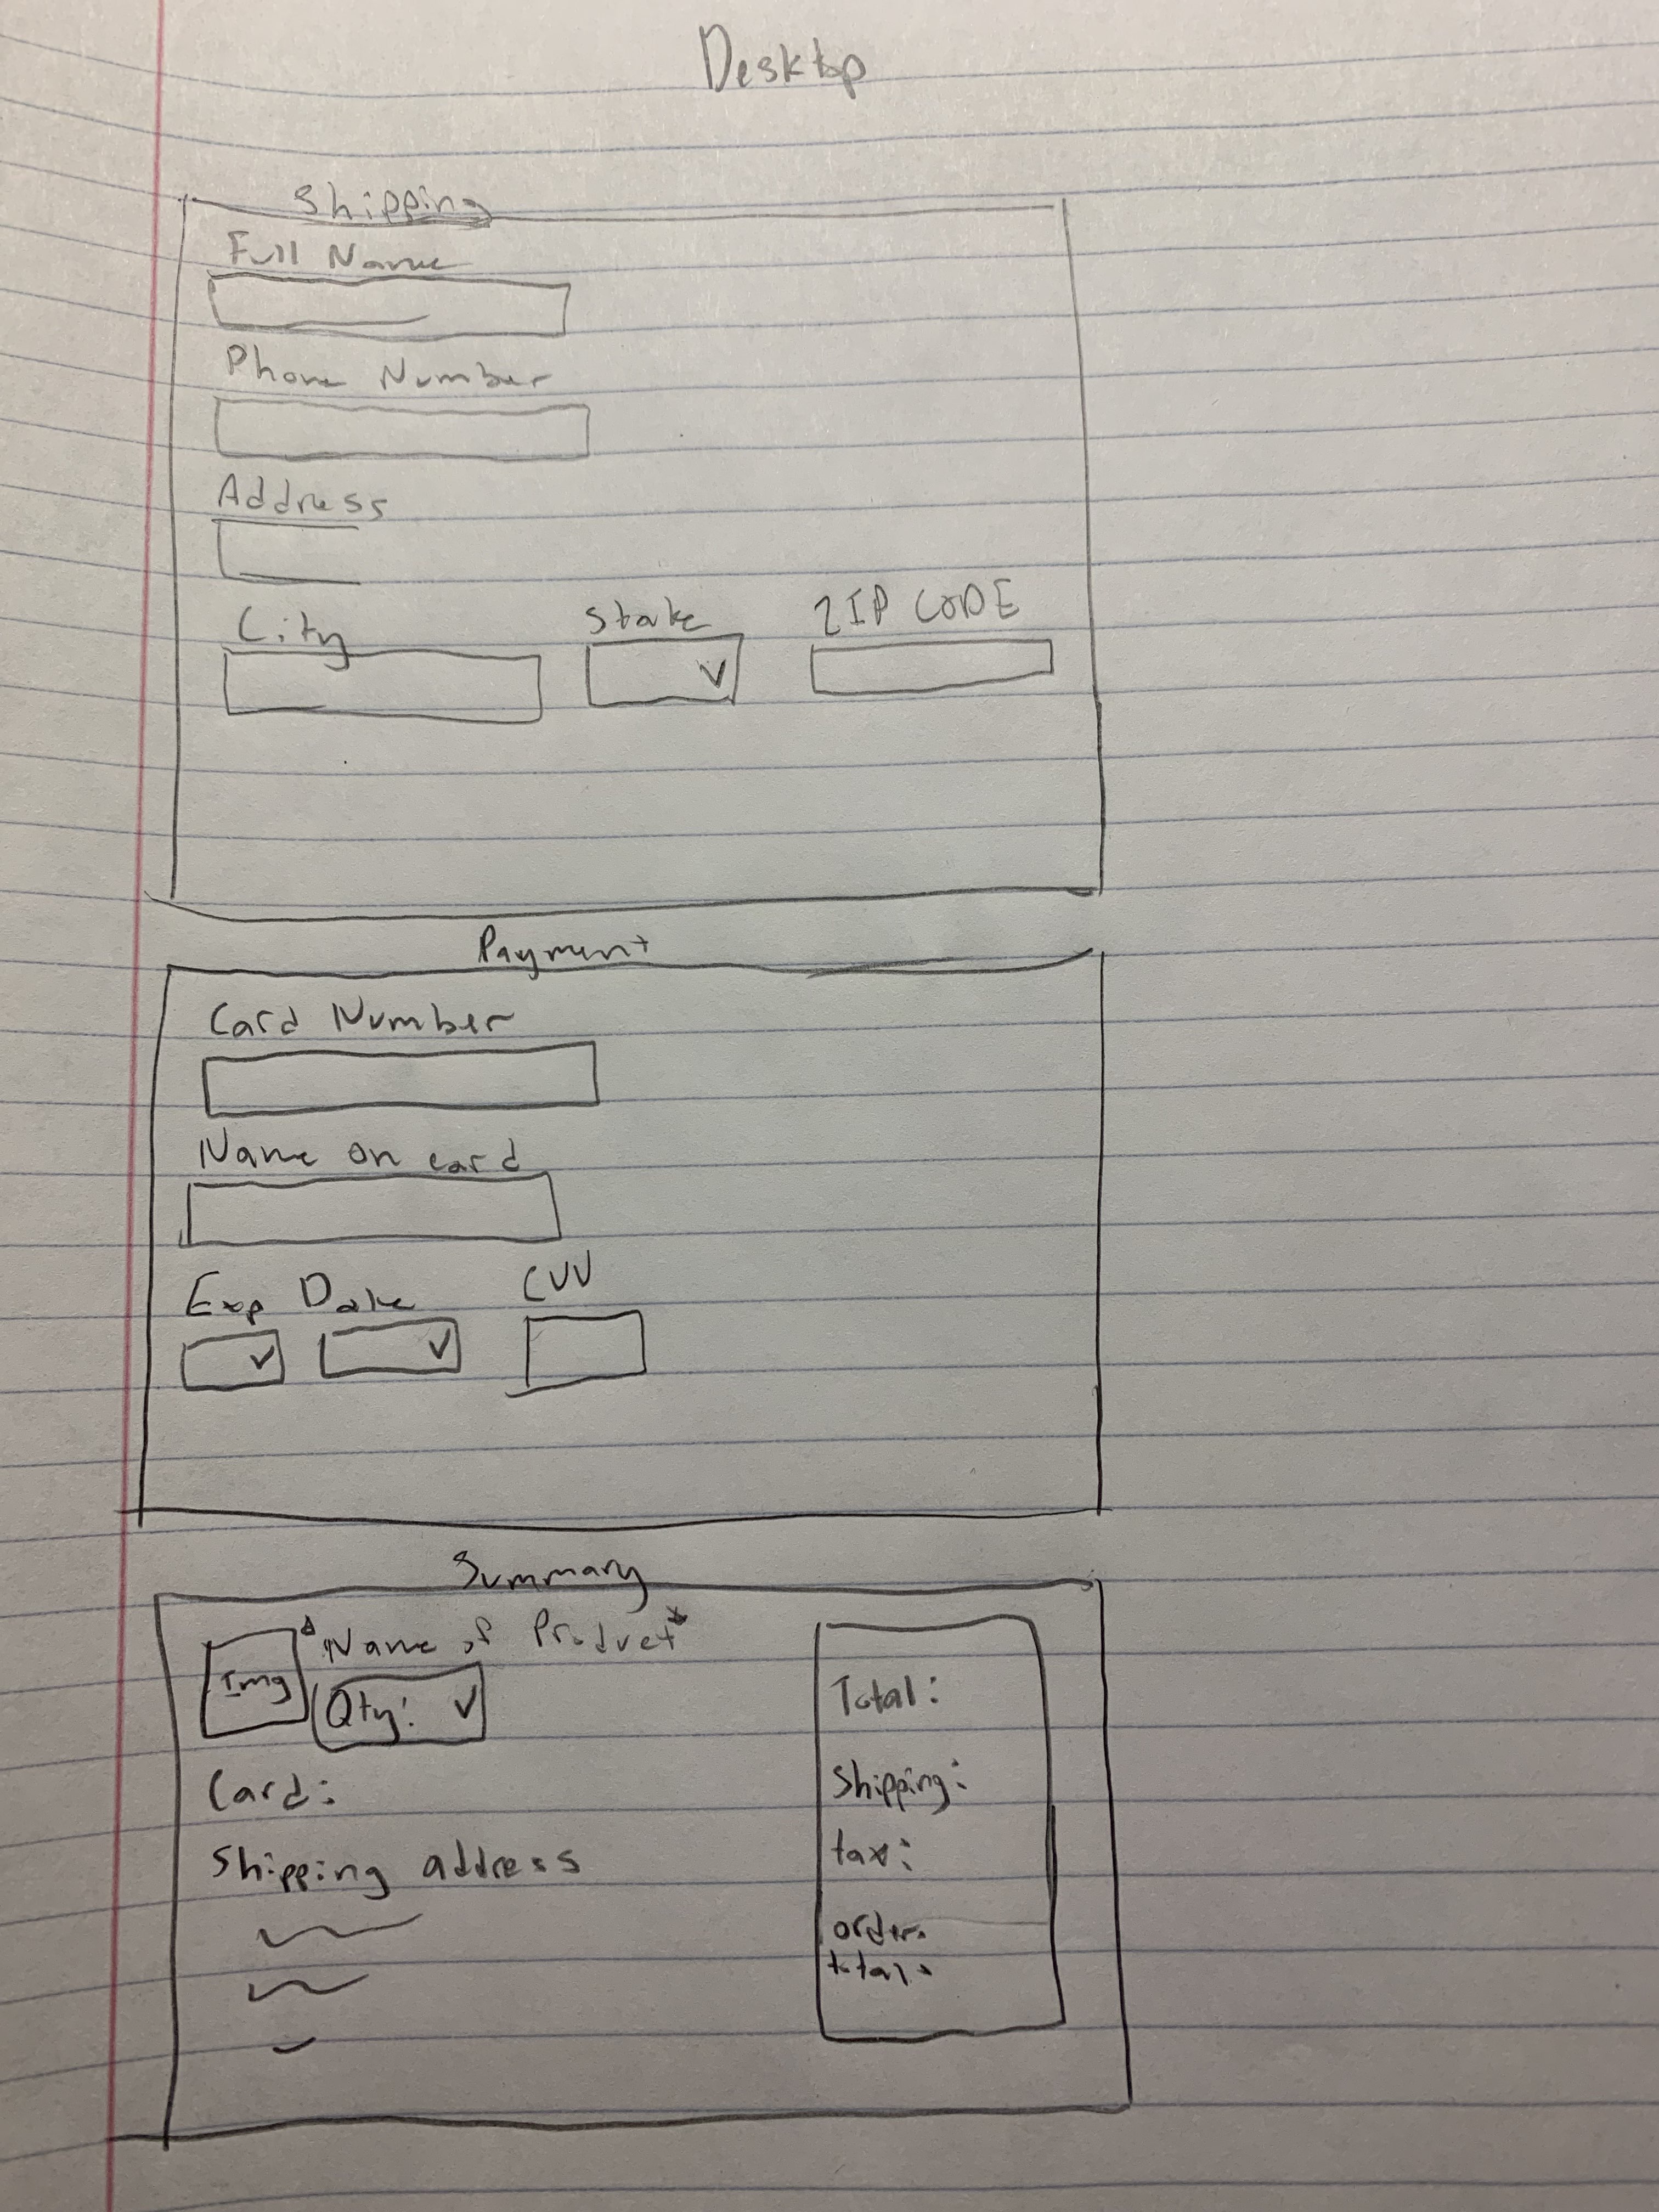 Desktop
Shipping
Full Name
Phone Number
Address
City State ZIP CODE
Payment
Card Number
Name on card
Exp Date CVV
Summary
Img *Name of Product*
Qty:
Total:
Card:
Shipping:
Shipping address
tax:
order
total: